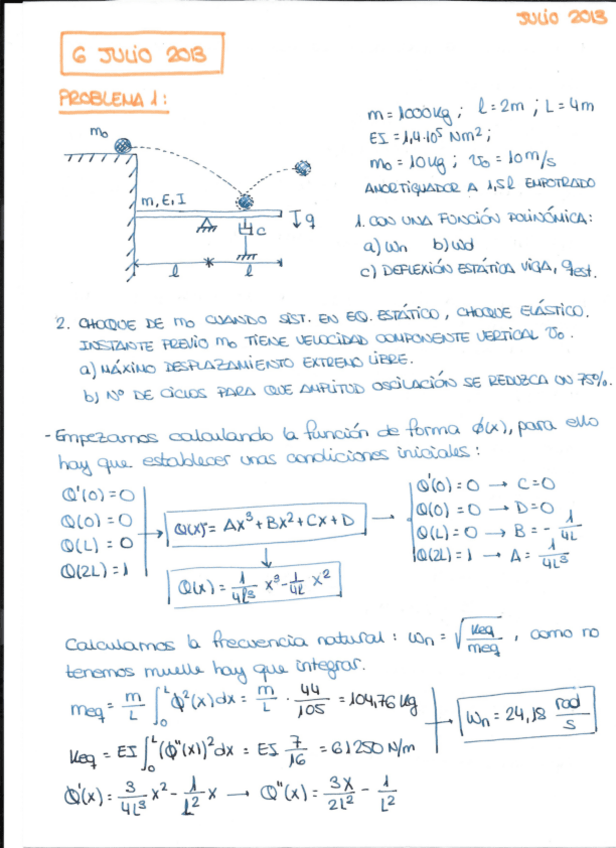 JULIO 2013
6 JULIO 2013
PROBLEMA 1:
m₀
m, E, I
c
q
l
l
m = 1000 kg ; l = 2m ; L = 4m
EI = 1,4·10⁵ Nm² ;
m₀ = 10 kg ; v₀ = 10 m/s
AMORTIGUADOR A 1,5l EMPOTRADO
1. CON UNA FUNCIÓN POLINÓMICA:
a) ωn b) ωd
c) DEFLEXIÓN ESTÁTICA VIGA, qest.
2. CHOQUE DE m₀ CUANDO SIST. EN EQ. ESTÁTICO, CHOQUE ELÁSTICO.
INSTANTE PREVIO m₀ TIENE VELOCIDAD COMPONENTE VERTICAL v₀.
a) MÁXIMO DESPLAZAMIENTO EXTREMO LIBRE.
b) Nº DE CICLOS PARA QUE AMPLITUD OSCILACIÓN SE REDUZCA UN 75%.
- Empezamos calculando la función de forma ϕ(x), para ello
hay que establecer unas condiciones iniciales:
ϕ'(0) = 0
ϕ(0) = 0
ϕ(L) = 0
ϕ(2L) = 1
→ ϕ(x) = Ax³ + Bx² + Cx + D →
ϕ(x) = 1/4l³ x³ - 1/4l x²
ϕ'(0) = 0 → C = 0
ϕ(0) = 0 → D = 0
ϕ(L) = 0 → B = - 1/4L
ϕ(2L) = 1 → A = 1/4L³
Calculamos la frecuencia natural: ωn = √(keq/meq) , como no
tenemos muelle hay que integrar.
meq = m/L ∫₀ᴸ ϕ²(x)dx = m/L · 44/105 = 104,76 kg
keq = EI ∫₀ᴸ (ϕ''(x))² dx = EI 7/16 = 61250 N/m
→ ωn = 24,18 rad/s
ϕ'(x) = 3/4L³ x² - 1/L² x → ϕ''(x) = 3x/2L² - 1/L²